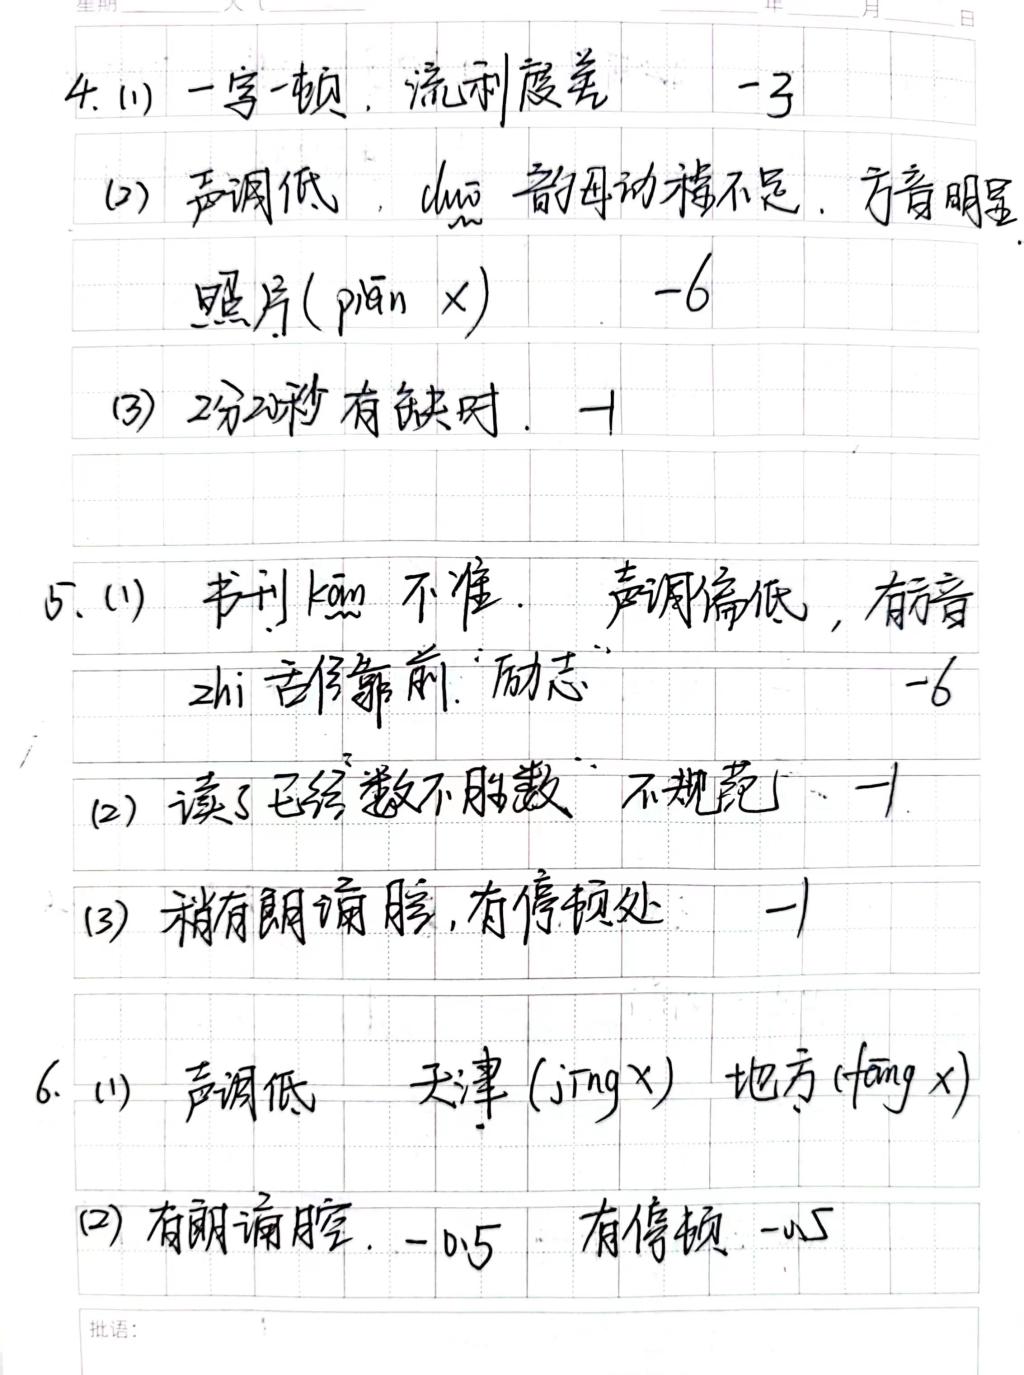 年 月 日
4. (1) 一字一顿，流利度差 -3
(2) 声调低，duō 韵母动程不足，方音明显.
照片(piān ×) -6
(3) 2分20秒有缺时. -1
5. (1) 书刊 kān 不准. 声调偏低，有方音
zhi 舌位靠前."励志" -6
(2) 读了已经"数不胜数" 不规范 -1
(3) 稍有朗诵腔，有停顿处 -1
6. (1) 声调低 天津(jīng ×) 地方(fāng ×)
(2) 有朗诵腔. -0.5 有停顿 -0.5
批语：